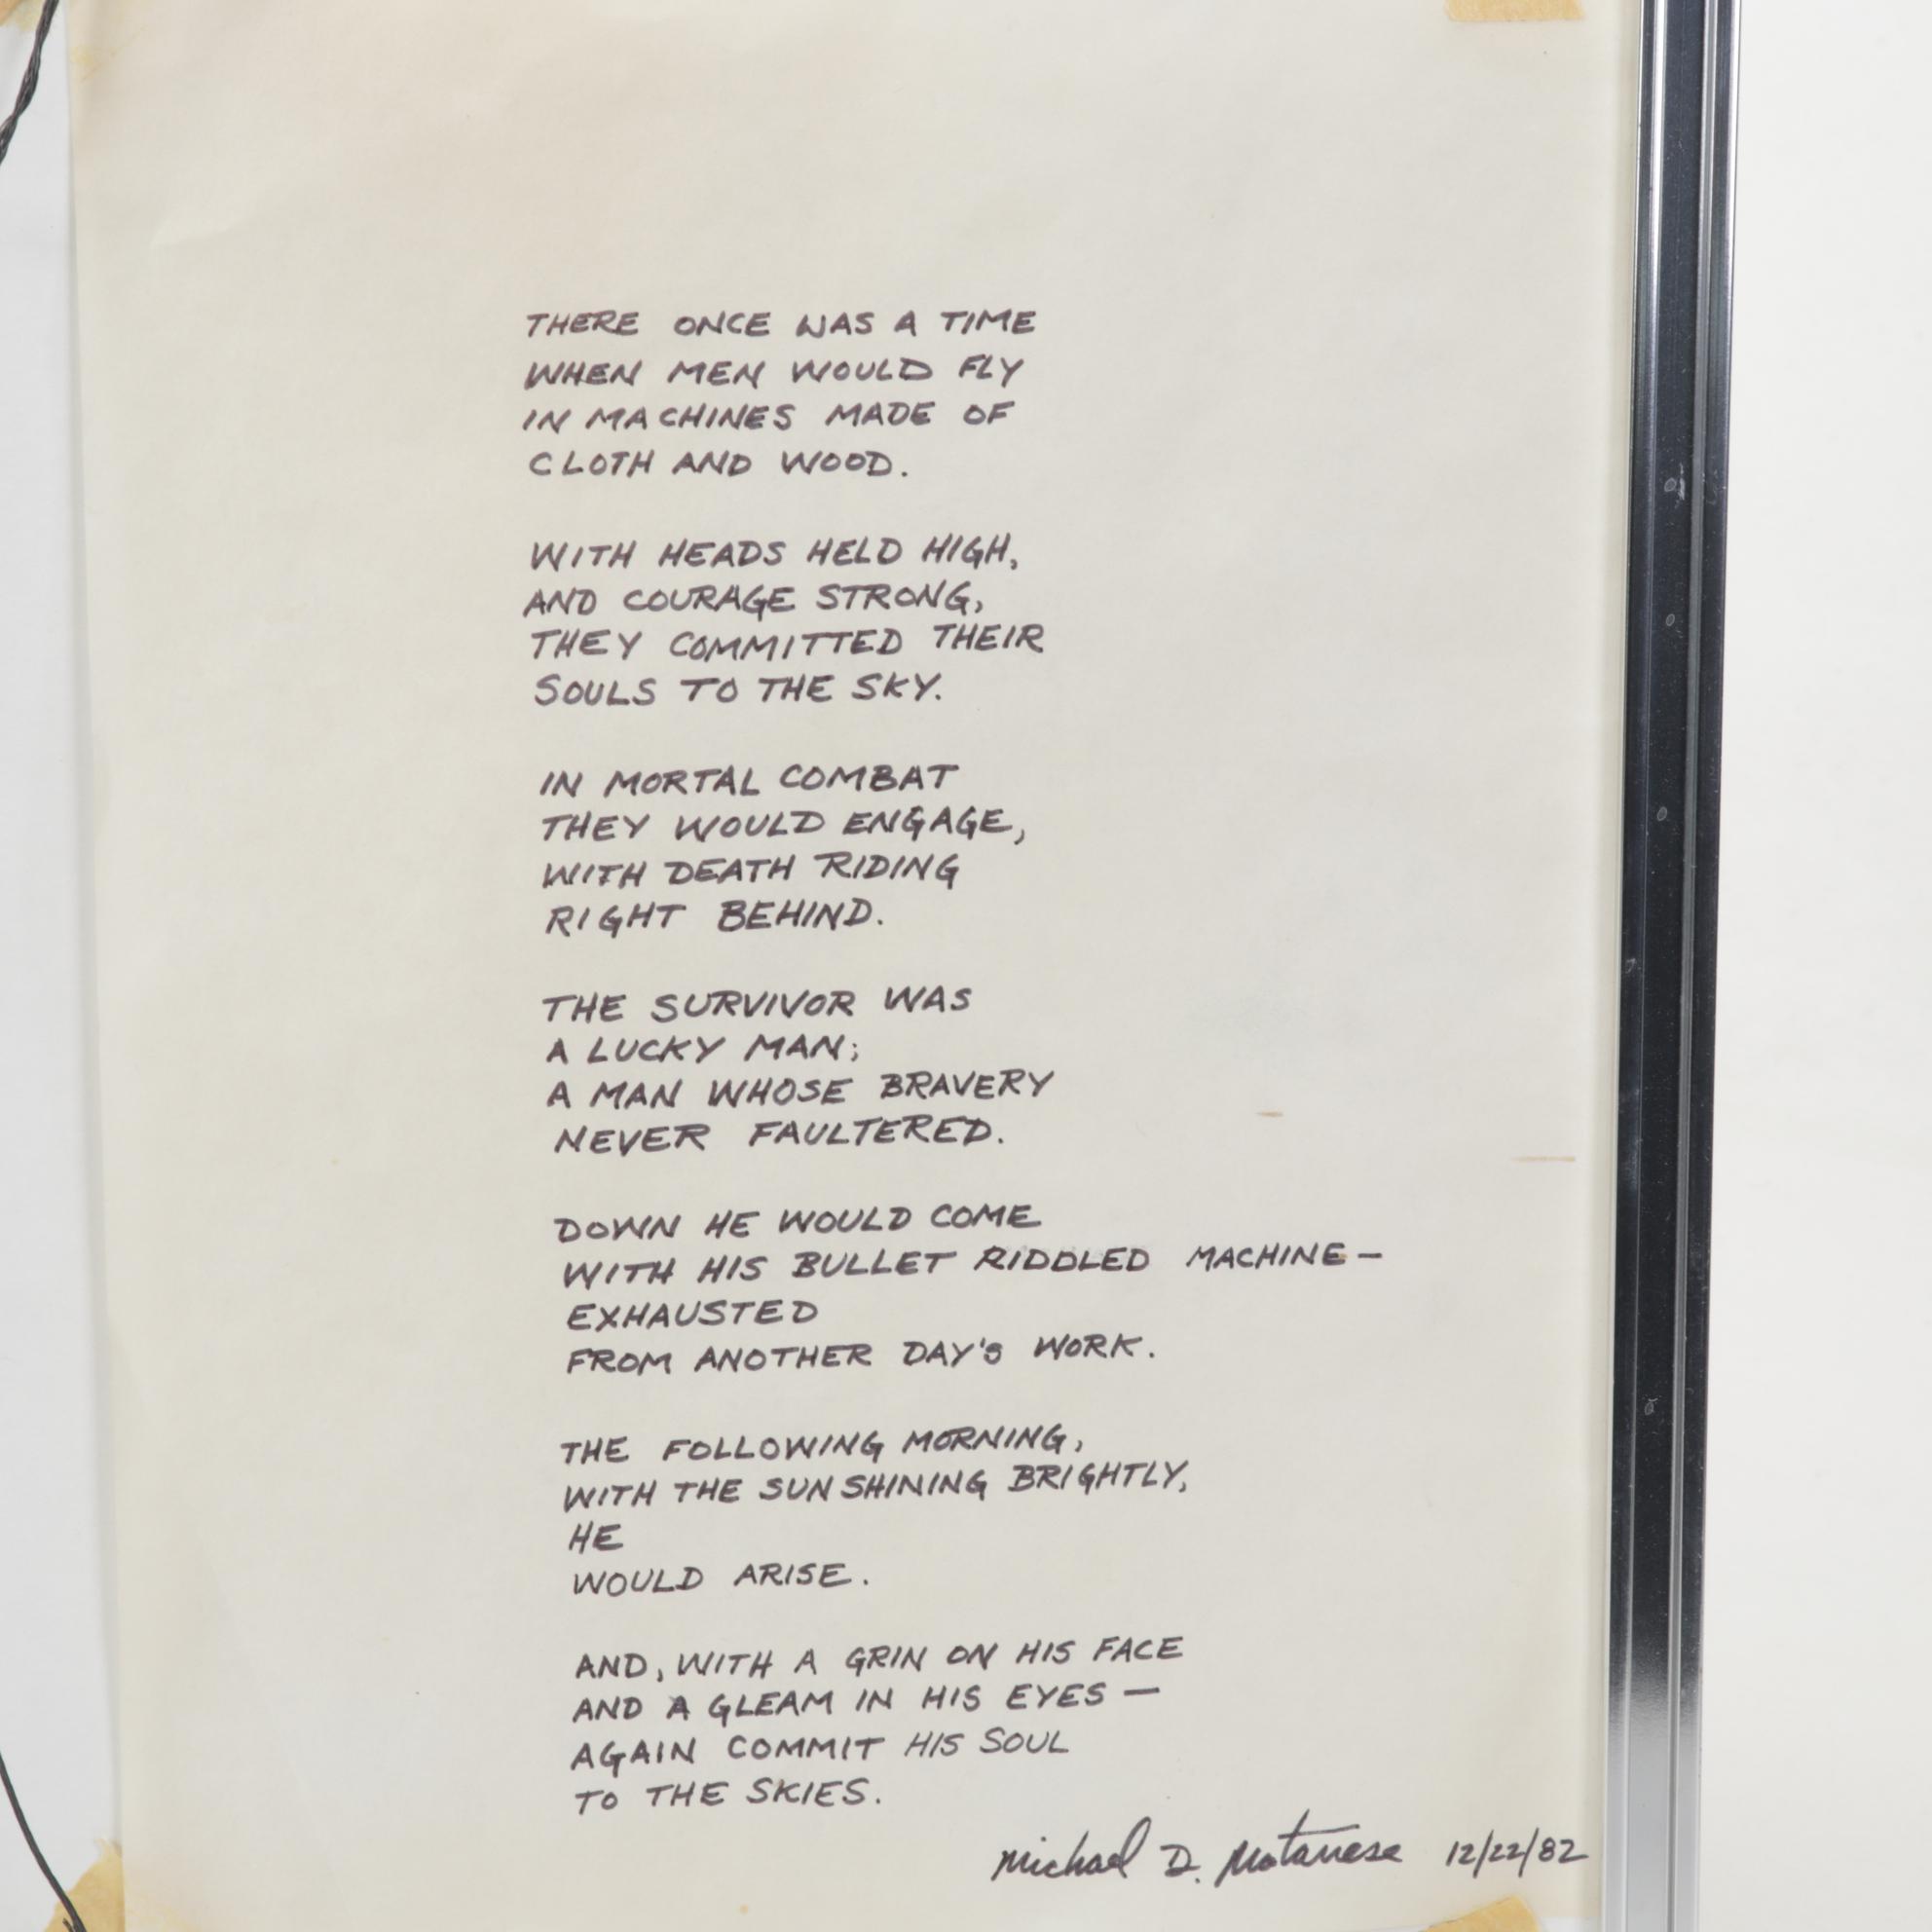 THERE ONCE WAS A TIME
WHEN MEN WOULD FLY
IN MACHINES MADE OF
CLOTH AND WOOD.
WITH HEADS HELD HIGH,
AND COURAGE STRONG,
THEY COMMITTED THEIR
SOULS TO THE SKY.
IN MORTAL COMBAT
THEY WOULD ENGAGE,
WITH DEATH RIDING
RIGHT BEHIND.
THE SURVIVOR WAS
A LUCKY MAN;
A MAN WHOSE BRAVERY
NEVER FAULTERED.
DOWN HE WOULD COME
WITH HIS BULLET RIDDLED MACHINE—
EXHAUSTED
FROM ANOTHER DAY'S WORK.
THE FOLLOWING MORNING,
WITH THE SUN SHINING BRIGHTLY,
HE
WOULD ARISE.
AND, WITH A GRIN ON HIS FACE
AND A GLEAM IN HIS EYES —
AGAIN COMMIT HIS SOUL
TO THE SKIES.
Michael D. 12/22/82